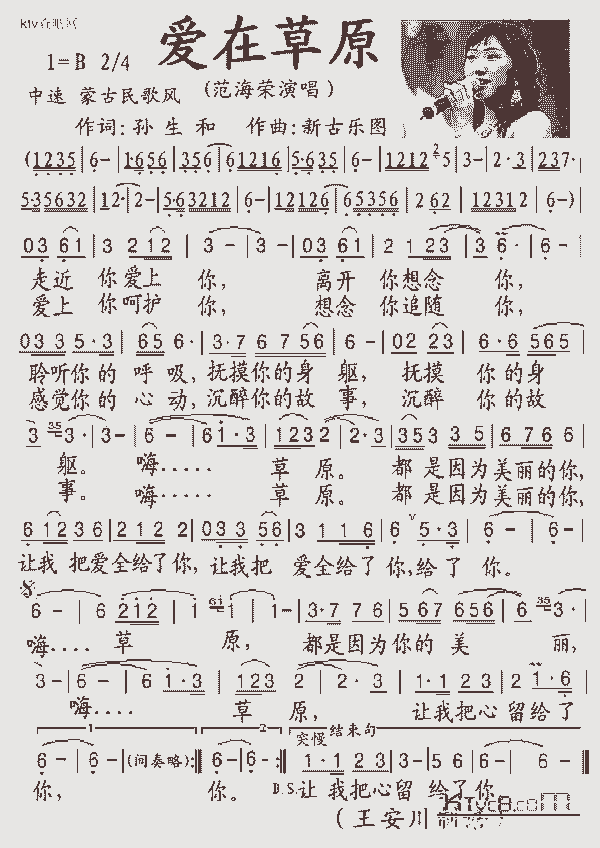 爱在草原
1=B 2/4
中速 蒙古民歌风
(范海荣演唱)
作词:孙生和 作曲:新古乐图
(1235|6-|1·656|356|61216|5·635|6-|1212 5|3-|2·3|237·|
5·35632|12·|2-|5·63212|6-|12126|65356|262|12312|6-)|
03 61|3 212|3-|3-|03 61|2 1 23|3 6·|6-|
走近 你爱上 你, 离开 你想念 你,
爱上 你呵护 你, 想念 你追随 你,
03 3|5·3|65 6·|3·7|6 7 56|6-|02 23|6·6 565|
聆听你的 呼吸,抚摸你的身 躯, 抚摸 你的身
感觉你的 心动,沉醉你的故 事, 沉醉 你的故
3 3·|3-|6-|61·3|1232|2·3|353 3 5|6 76 6|
躯。 嗨..... 草 原。 都是因为美丽的你,
事。 嗨..... 草 原。 都是因为美丽的你,
6 123 6|2 12 2|033 56|3 116|6 5·3|6-|6-|
让我 把爱全给了你,让我把 爱全给了你,给了 你。
6-|6 212|1 1|1-|3·7 7 6|567 656|6 3·|
嗨.... 草 原, 都是因为你的 美 丽,
3-|6-|6 1·3|123|2-|2·3|1·1 23|2 1·6|
嗨.... 草 原, 让我把心留给了
1 2 突慢 结束句
6-|6-|(间奏略):|6-|6-:|1·1 23|3-|5 6|6-|6-|
你, 你。 D.S.让 我把心留 给了你
(王安川